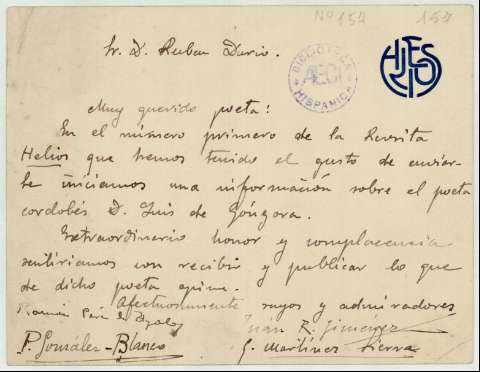 Nº 157 157
Sr. D. Ruben Dario.
BIBLIOTECA
AECI
HISPANICA
HELIOS
Muy querido poeta:
En el número primero de la Revista
Helios que hemos tenido el gusto de enviar-
le iniciamos una información sobre el poeta
cordobés D. Luis de Góngora.
Extraordinario honor y complacencia
sentiriamos con recibir y publicar lo que
de dicho poeta opine.
Afectuosamente suyos y admiradores
Ramón Pérez de Ayala
Juan R. Jiménez
P. González-Blanco
G. Martínez Sierra